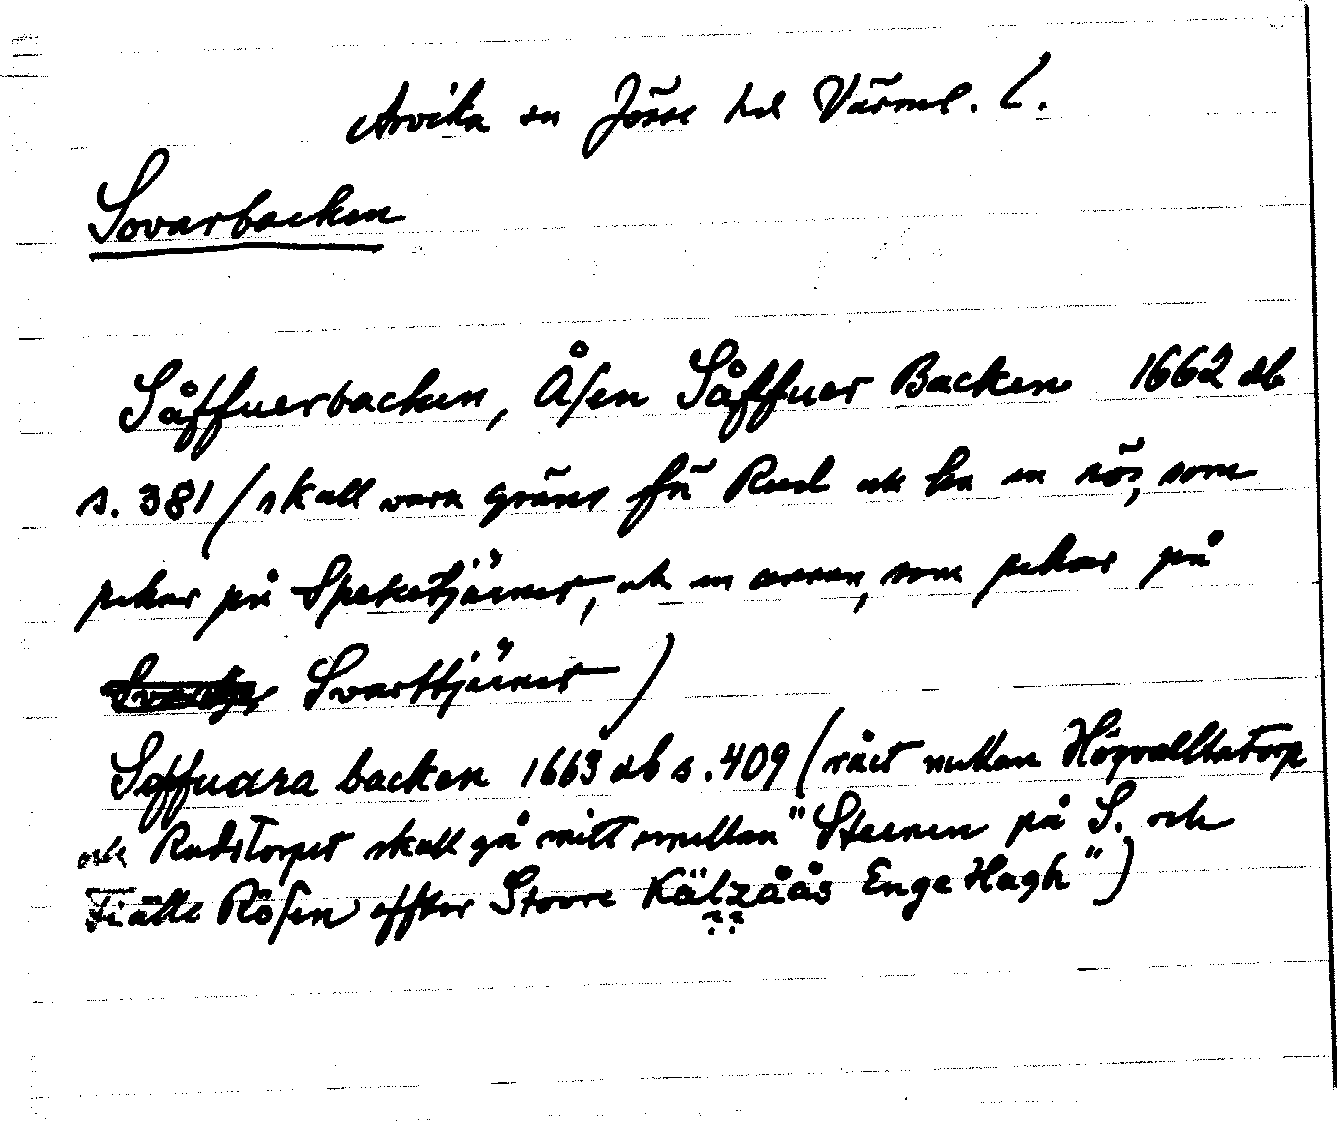 Arvika sn Jösse hd Värml. L.
Sovarbacken
Såffuerbacken, Åsen Såffuer Backen 1662 db
s. 381 (skall vara gräns fr̃ Rud och bn en rös, som
pekar på Speketjärnet, och en annan, som pekar på
Svarttjärnet)
Soffuara backen 1663 db s. 409 (rået mellan Högvalltatorp
och Rudstorpet skall gå mitt emellan "Steenen på S. och
Fiälle Rösen effter Stoore Kälzåås Enge Hagh")